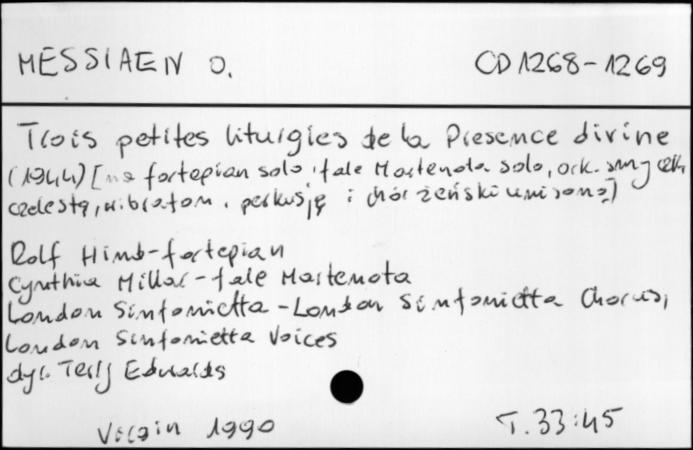 MESSIAEN O. CD 1268-1269
Trois petites liturgies de la Presence divine
(1944) [na fortepian solo, fale Martenota solo, ork. smyczk,
czelestę, wibrafon, perkusję i chór żeński unisono]
Rolf Hind-fortepian
Cynthia Millar-fale Martenota
London Sinfonietta-London Sinfonietta Chorus,
London Sinfonietta Voices
dyr. Terry Edwards
Virgin 1990 T. 33:45